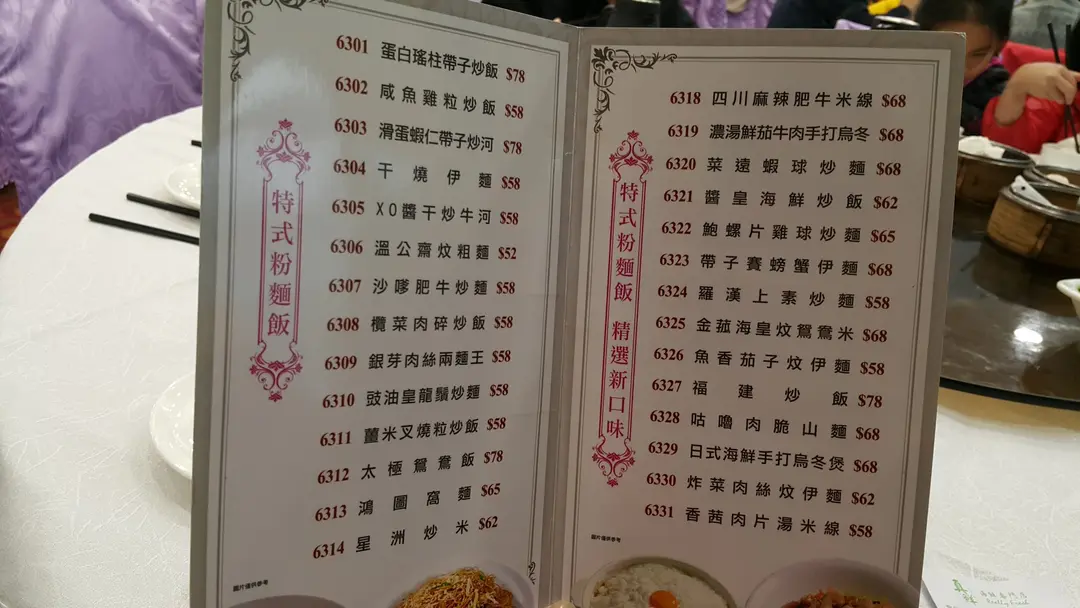 特式粉麵飯
6301 蛋白瑤柱帶子炒飯 $78
6302 咸魚雞粒炒飯 $58
6303 滑蛋蝦仁帶子炒河 $78
6304 干燒伊麵 $58
6305 XO醬干炒牛河 $58
6306 溫公齋炆粗麵 $52
6307 沙嗲肥牛炒麵 $58
6308 欖菜肉碎炒飯 $58
6309 銀芽肉絲兩麵王 $58
6310 豉油皇龍鬚炒麵 $58
6311 薑米叉燒粒炒飯 $58
6312 太極鴛鴦飯 $78
6313 鴻圖窩麵 $65
6314 星洲炒米 $62
圖片僅供參考
特式粉麵飯 精選新口味
6318 四川麻辣肥牛米線 $68
6319 濃湯鮮茄牛肉手打烏冬 $68
6320 菜遠蝦球炒麵 $68
6321 醬皇海鮮炒飯 $62
6322 鮑螺片雞球炒麵 $65
6323 帶子賽螃蟹伊麵 $68
6324 羅漢上素炒麵 $58
6325 金菰海皇炆鴛鴦米 $68
6326 魚香茄子炆伊麵 $58
6327 福建炒飯 $78
6328 咕嚕肉脆山麵 $68
6329 日式海鮮手打烏冬煲 $68
6330 炸菜肉絲炆伊麵 $62
6331 香茜肉片湯米線 $58
圖片僅供參考